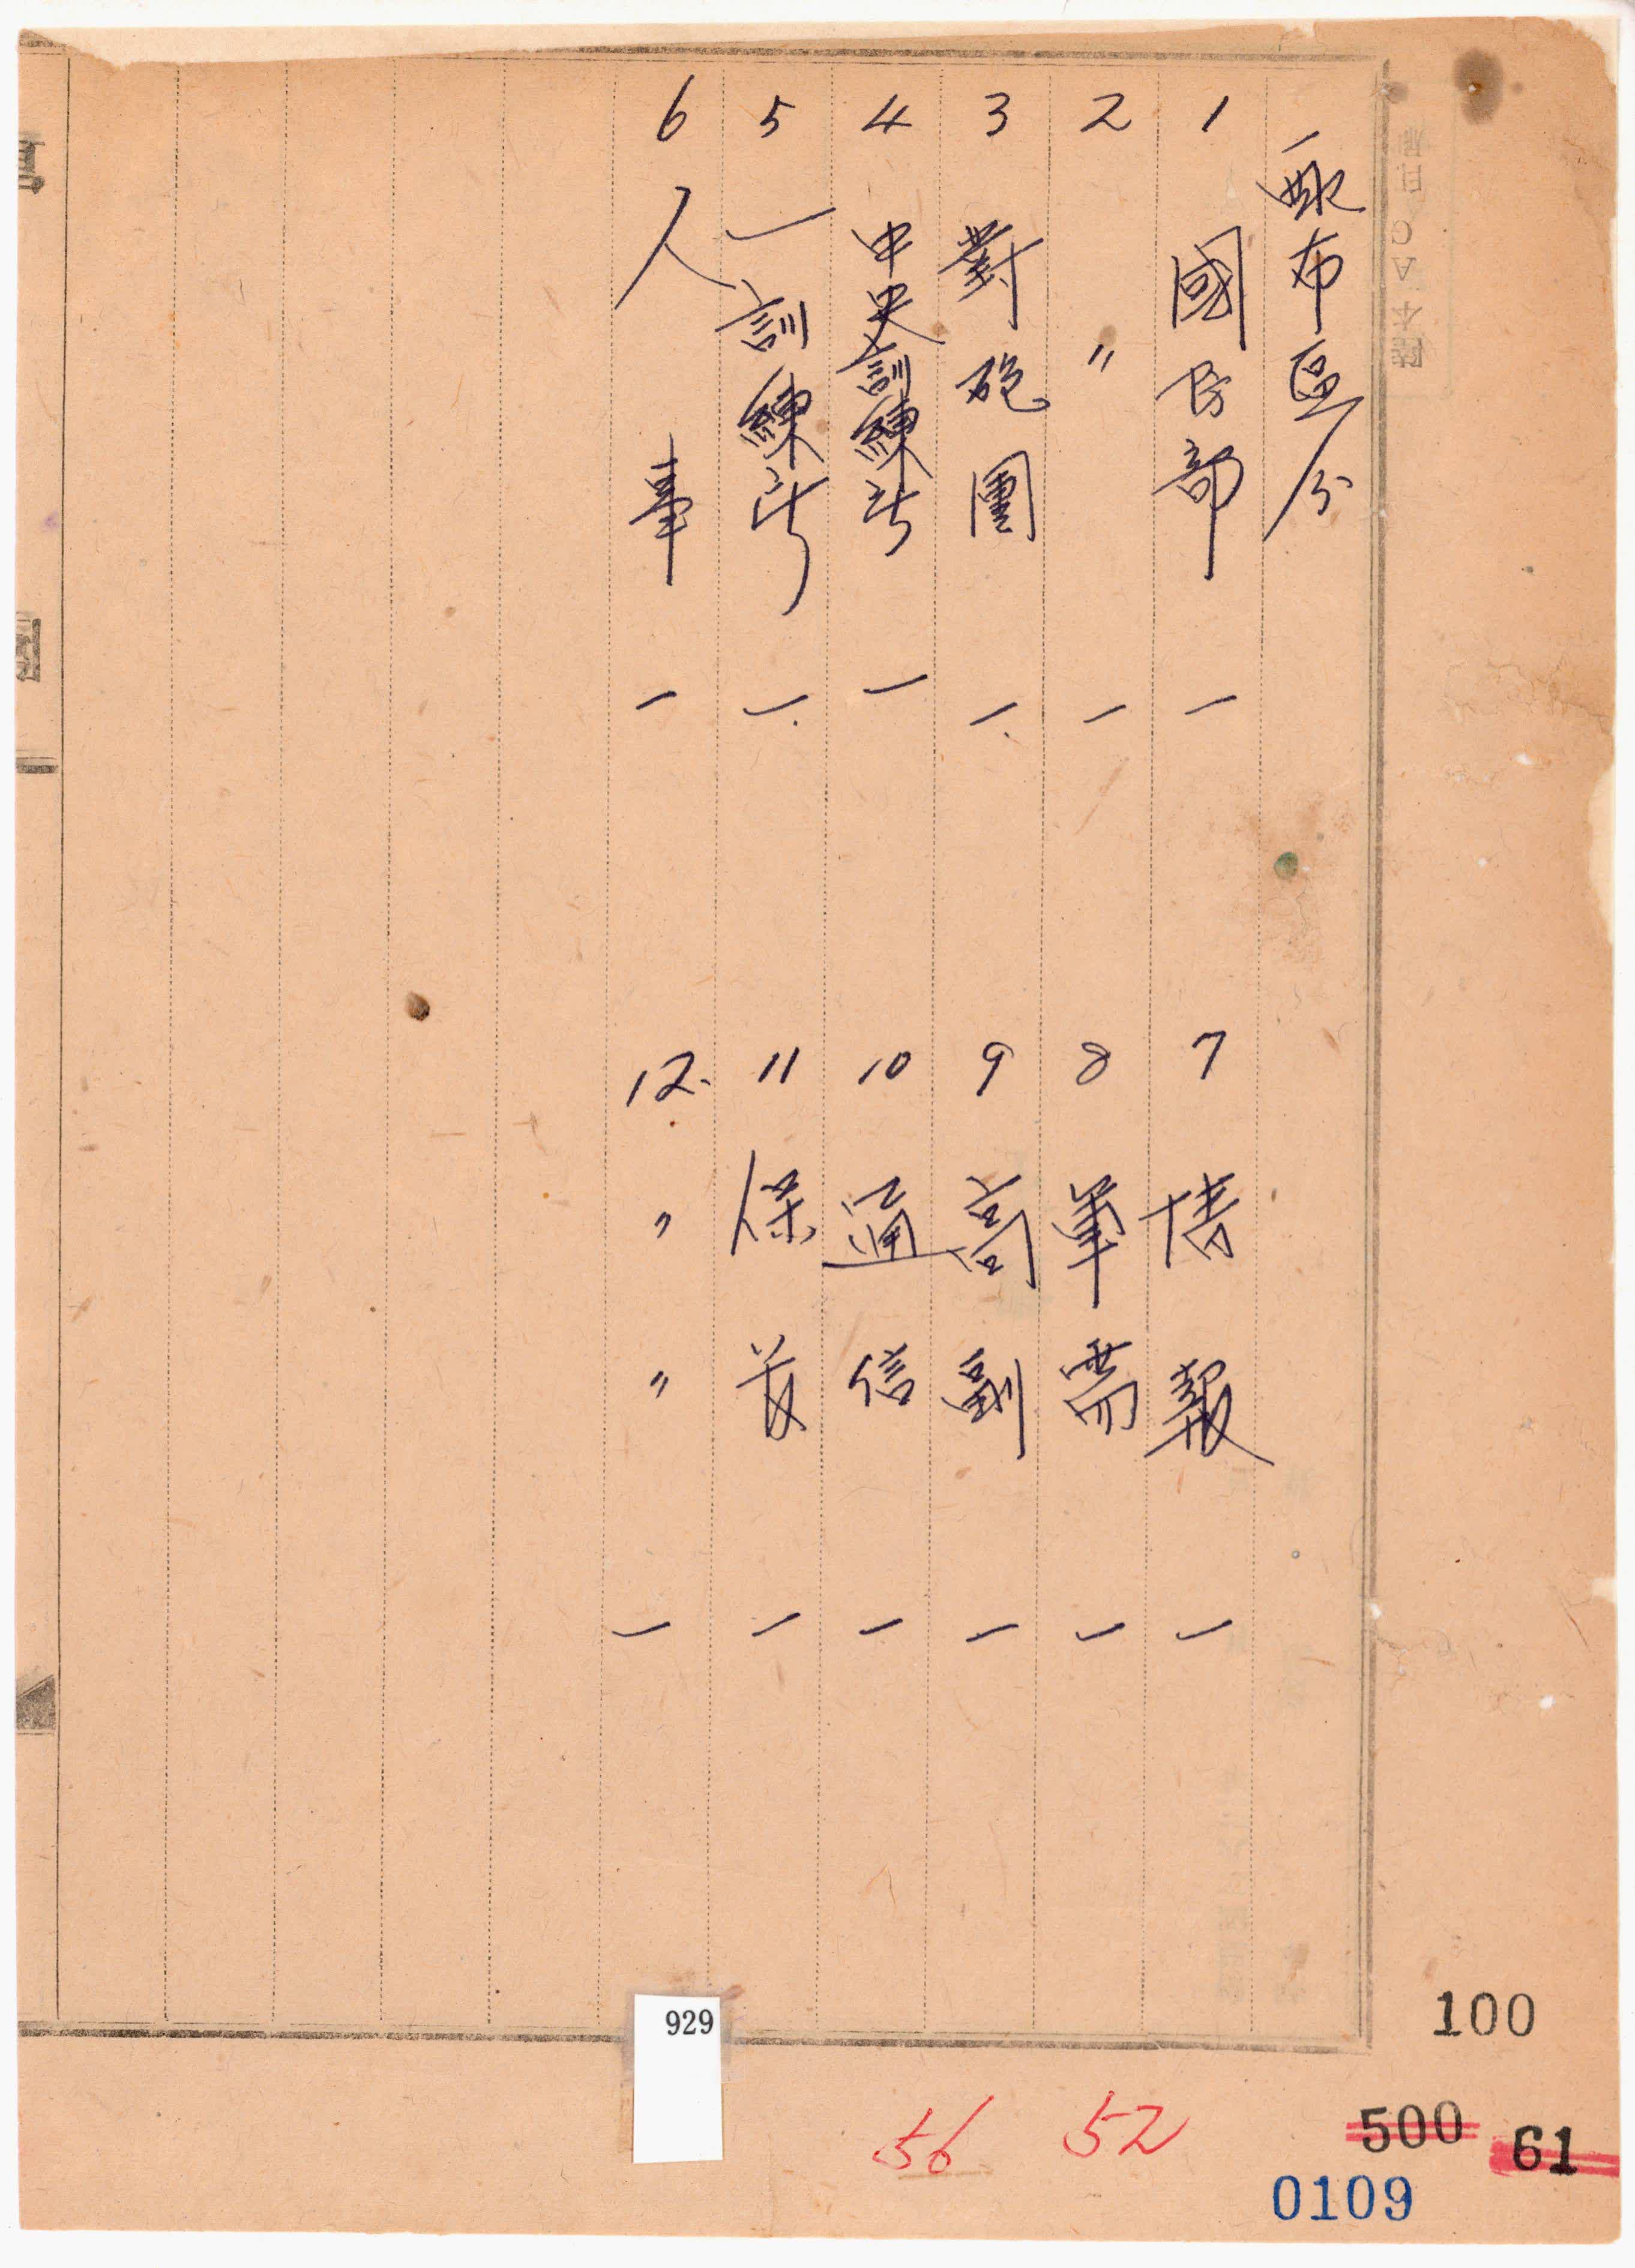 一 配布區分
1 國防部 一
2 〃 一
3 對砲團 一
4 中央訓練所 一
5 一訓練所 一
6 人事 一
7 情報 一
8 軍需 一
9 高副 一
10 通信 一
11 保 一
12. 〃 〃 一
929
100
56 52
500
61
0109